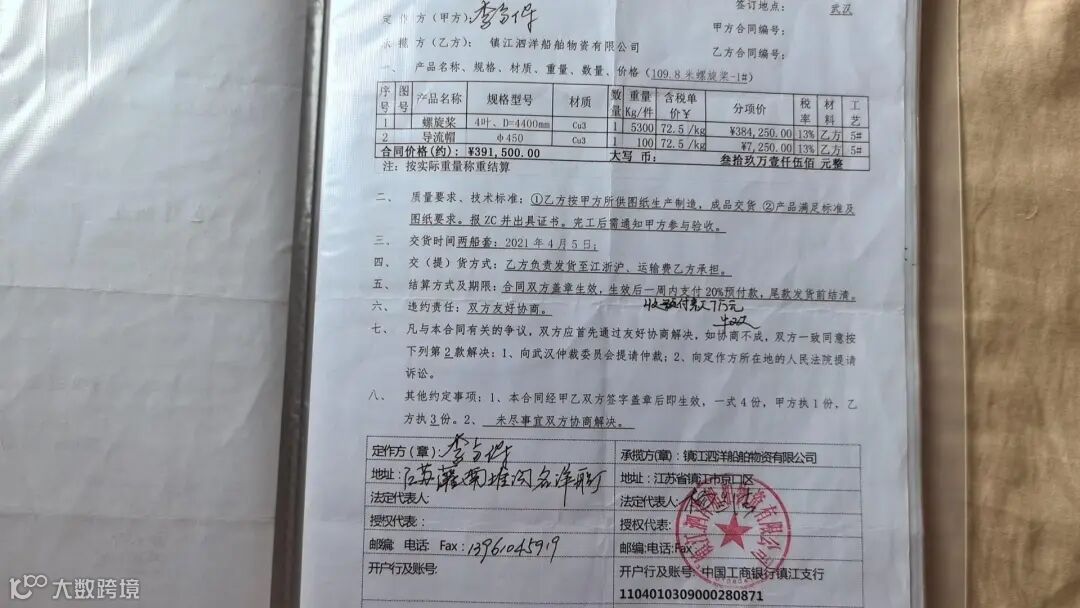 签订地点： 武汉
定作方（甲方）：
甲方合同编号：
承揽方（乙方）： 镇江泗洋船舶物资有限公司
乙方合同编号：
一、 产品名称、规格、材质、重量、数量、价格（109.8 米螺旋桨-1#）
序号 图号 产品名称 规格型号 材质 数量 重量Kg/件 含税单价¥ 分项价 税率 材料 工艺
1 螺旋桨 4叶、D=4400mm Cu3 1 5300 72.5 /kg ¥384,250.00 13% 乙方 5#
2 导流帽 φ450 Cu3 1 100 72.5 /kg ¥7,250.00 13% 乙方 5#
合同价格(约)： ¥391,500.00 大写 币： 叁拾玖万壹仟伍佰 元整
注：按实际重量称重结算
二、 质量要求、技术标准：①乙方按甲方所供图纸生产制造，成品交货 ②产品满足标准及
图纸要求。报 ZC 并出具证书。完工后需通知甲方参与验收。
三、 交货时间两船套：2021 年 4 月 5 日；
四、 交（提）货方式：乙方负责发货至江浙沪、运输费乙方承担。
五、 结算方式及期限：合同双方盖章生效，生效后一周内支付 20%预付款，尾款发货前结清。
六、 违约责任：双方友好协商。
七、 凡与本合同有关的争议，双方应首先通过友好协商解决，如协商不成，双方一致同意按
下列第 2 款解决：1、向武汉仲裁委员会提请仲裁；2、向定作方所在地的人民法院提请
诉讼。
八、 其他约定事项：1、本合同经甲乙双方签字盖章后即生效，一式 4 份，甲方执 1 份，乙
方执 3 份。2、 未尽事宜双方协商解决。
定作方（章）：
承揽方(章)： 镇江泗洋船舶物资有限公司
地址：
地址：江苏省镇江市京口区
法定代表人：
法定代表人：
授权代表：
授权代表：
邮编: 电话: Fax：13961045919
邮编:电话:Fax
开户行及账号:
开户行及账号: 中国工商银行镇江支行
1104010309000280871
大数跨境